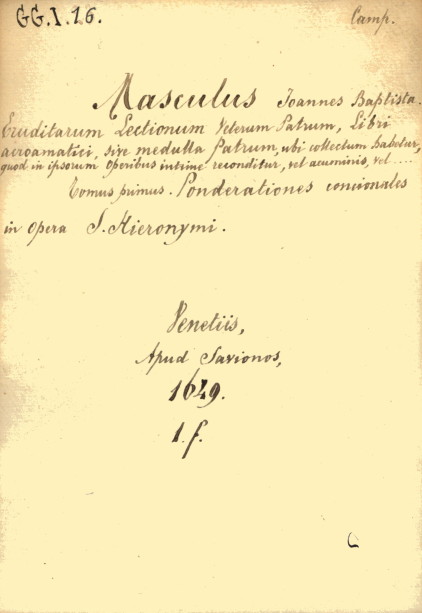 GG.I.16.
Camp.
Masculus Joannes Baptista.
Eruditarum Lectionum Veterum Patrum, Libri
acroamatici, sive medulla Patrum, ubi collectum habetur,
quod in ipsorum Operibus intrine reconditur, vel acuminis, vel ....
Tomus primus. Ponderationes concionales
in Opera S. Hieronymi.
Venetiis,
Apud Savionos,
1649.
1. f.